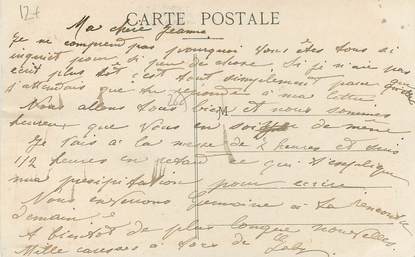 12+
CARTE POSTALE
Ma chère Jeanne
Je ne comprend pas pourquoi vous êtes tous si
inquiet pour si peu de chose. Si je n'ai pas
écrit plus tôt c'est tout simplement parce que
j'attendais que tu répondes à ma lettre.
Nous allons tous bien et nous sommes
heureux que vous en soyez de même.
M
Je vais à la messe de 2 heures et suis
1/2 heures en retard ce qui t'explique
ma présipitation pour écrire
Nous enverrons Germaine à la rencontre
demain
A bientôt de plus longue nouvelles.
Mille caresses à tous de